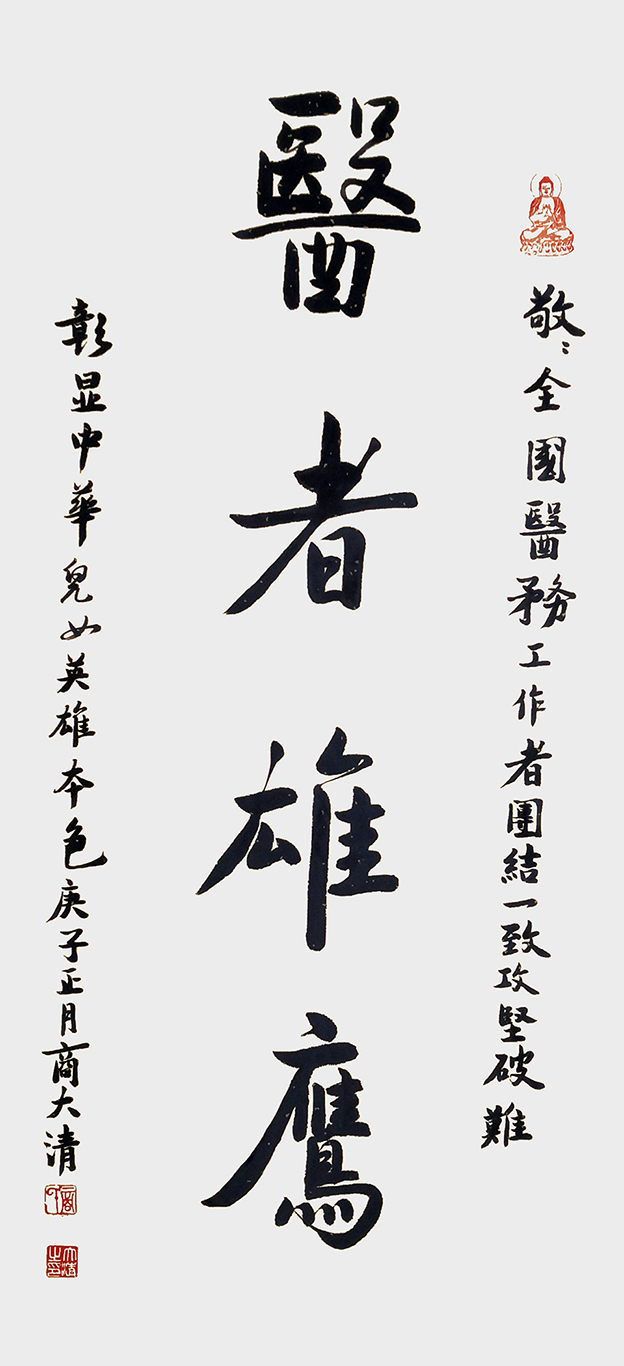 敬〻全國醫務工作者團結一致攻堅破難
醫者雄鷹
彰显中華兒女英雄本色庚子正月商大清
大清之印